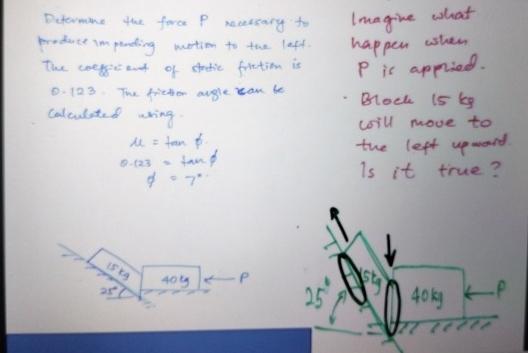 Determine the force P necessary to
produce impending motion to the left.
The coefficient of static friction is
0.123. The friction angle can be
calculated using.
μ = tan φ.
0.123 = tan φ
φ = 7°.
15 kg
40 kg
P
25°
Imagine what
happen when
P is applied.
Block 15 kg
will move to
the left upward.
Is it true?
15kg
40 kg
P
25°